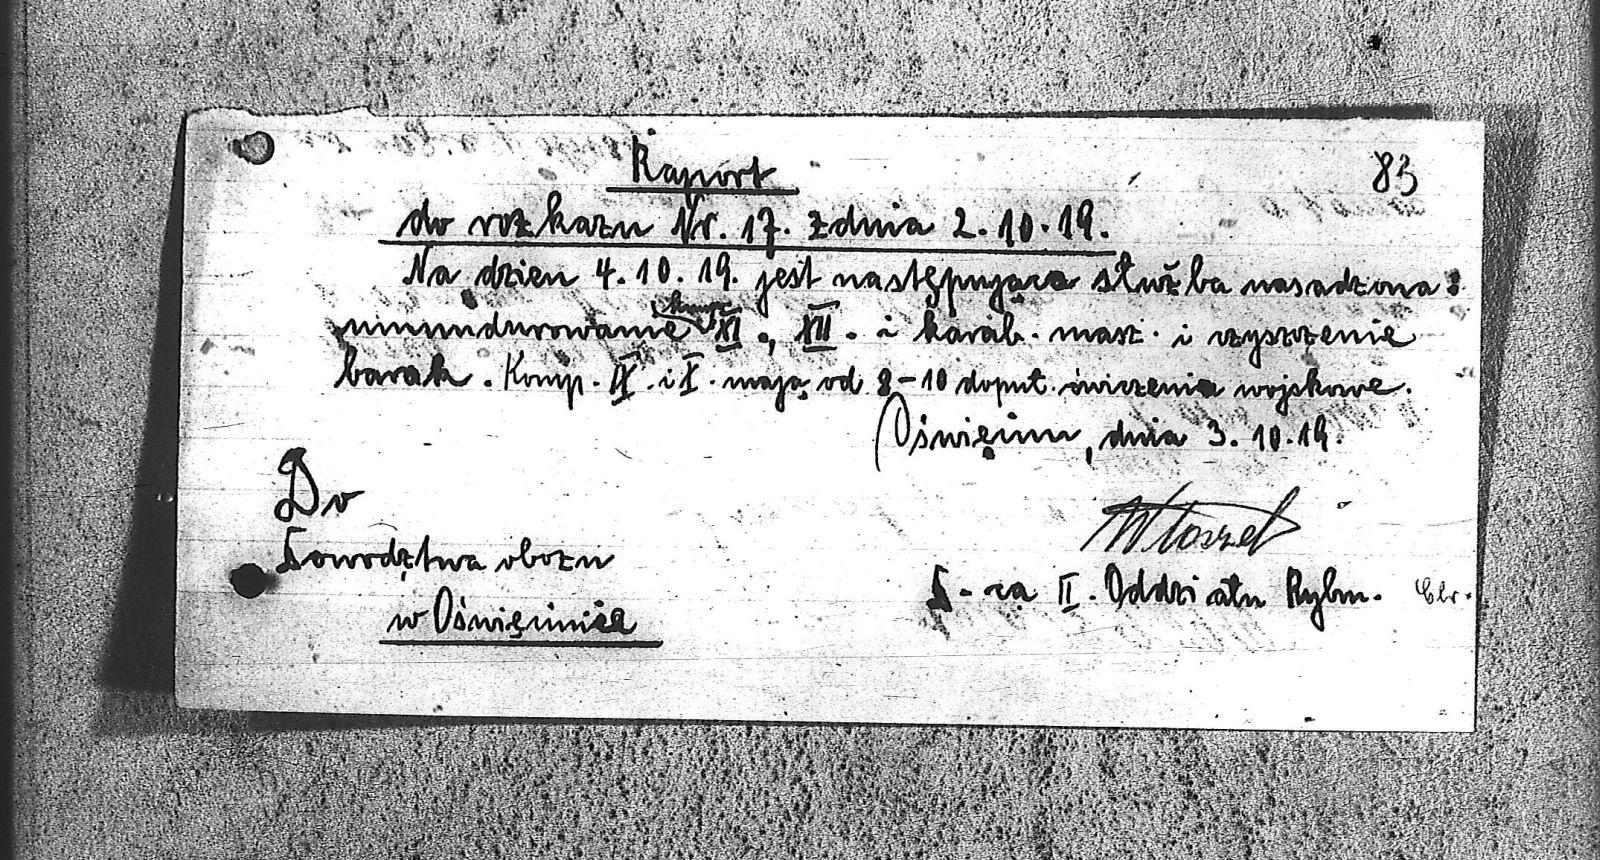 83
Raport
do rozkazu Nr. 17. z dnia 2.10.19.
Na dzien 4.10.19. jest następująca służba nasadzona:
umundurowanie komp. XI., XII. i karab. masz. i czyszczenie
barak. Komp. IX. i X. mają od 8-10 dopuł. ćwiczenia wojskowe.
Oświęcim, dnia 3.10.19.
Do
Dowództwa obozu
w Oświęcimie
D-ca II. Oddziału Rybn.